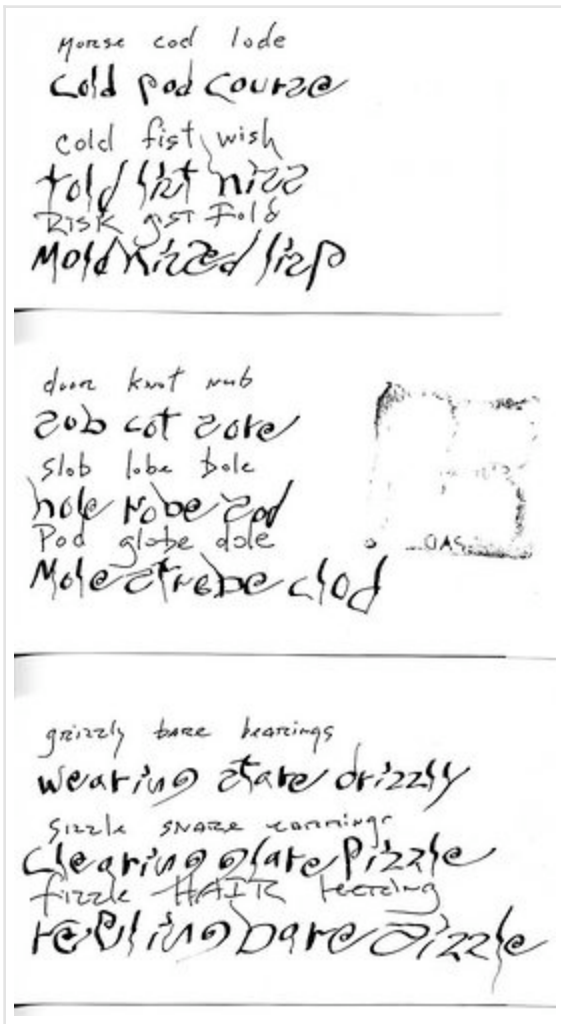 morse cod lode
cold pod course
cold fist wish
told list hiss
RISK gist Fold
Mold Kissed lisp
door knot nub
sob cot sore
slob lobe bole
hole robe sod
Pod globe dole
Mole strobe clod
OAS
grizzly bare bearings
wearing stare drizzly
sizzle SNARE earrings
Clearing glare Pizzle
fizzle HAIR teering
repeling bare sizzle